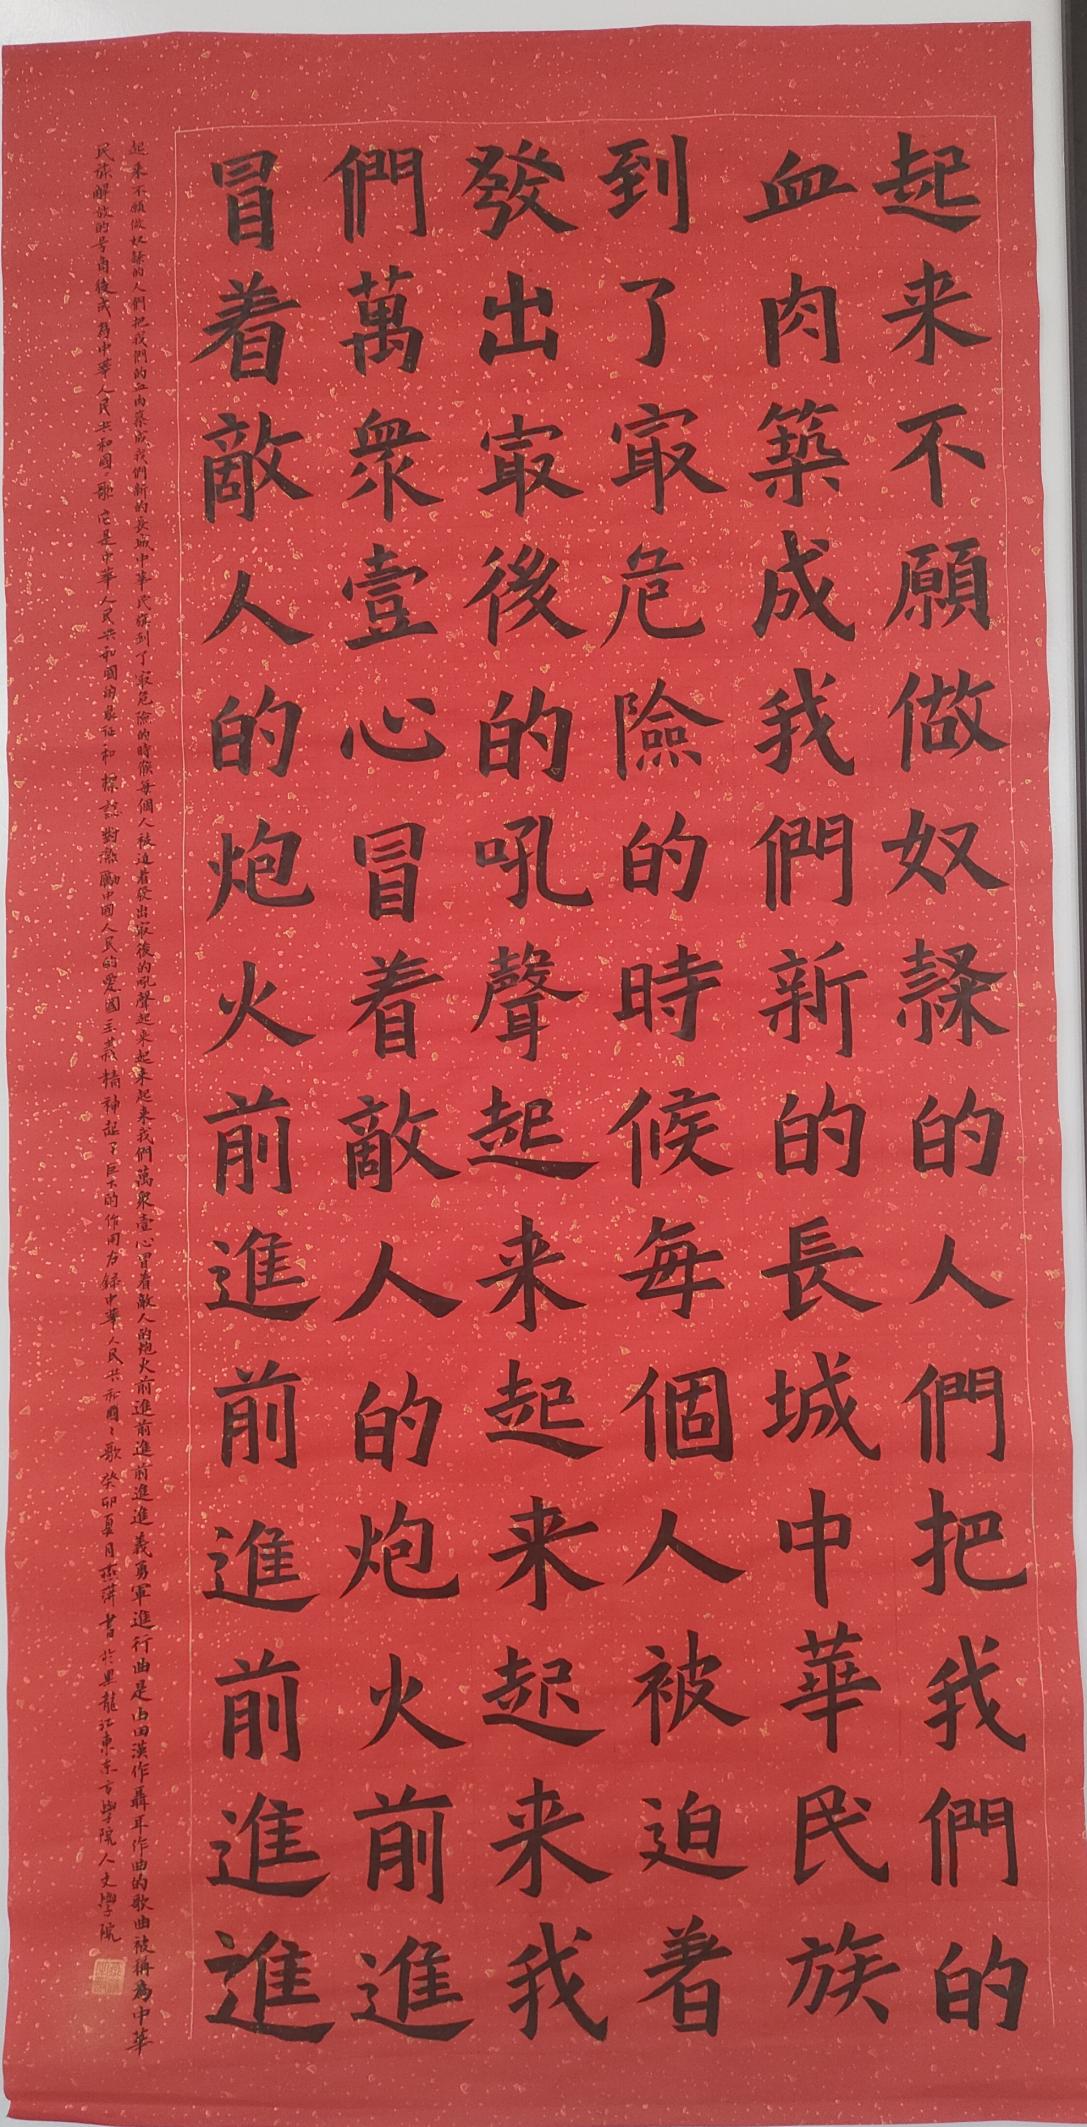 起来不願做奴隸的人們把我們的
血肉築成我們新的長城中華民族
到了冣危險的時候每個人被迫著
發出冣後的吼聲起来起来起来我
們萬衆壹心冒着敵人的炮火前進
冒着敵人的炮火前進前進前進進
起来不願做奴隸的人們把我們的血肉築成我們新的長城中華民族到了冣危險的時候每個人被迫着發出冣後的吼聲起来起来起来我們萬衆壹心冒着敵人的炮火前進前進前進進義勇軍進行曲是由田漢作聶耳作曲的歌曲被稱為中華
民族解放的号角後成為中華人民共和國歌它是中華人民共和國的象征和標誌對激勵中國人民的愛國主義精神起了巨大的作用右録中華人民共和國々歌癸卯夏月書於黑龍江東方學院人文學院